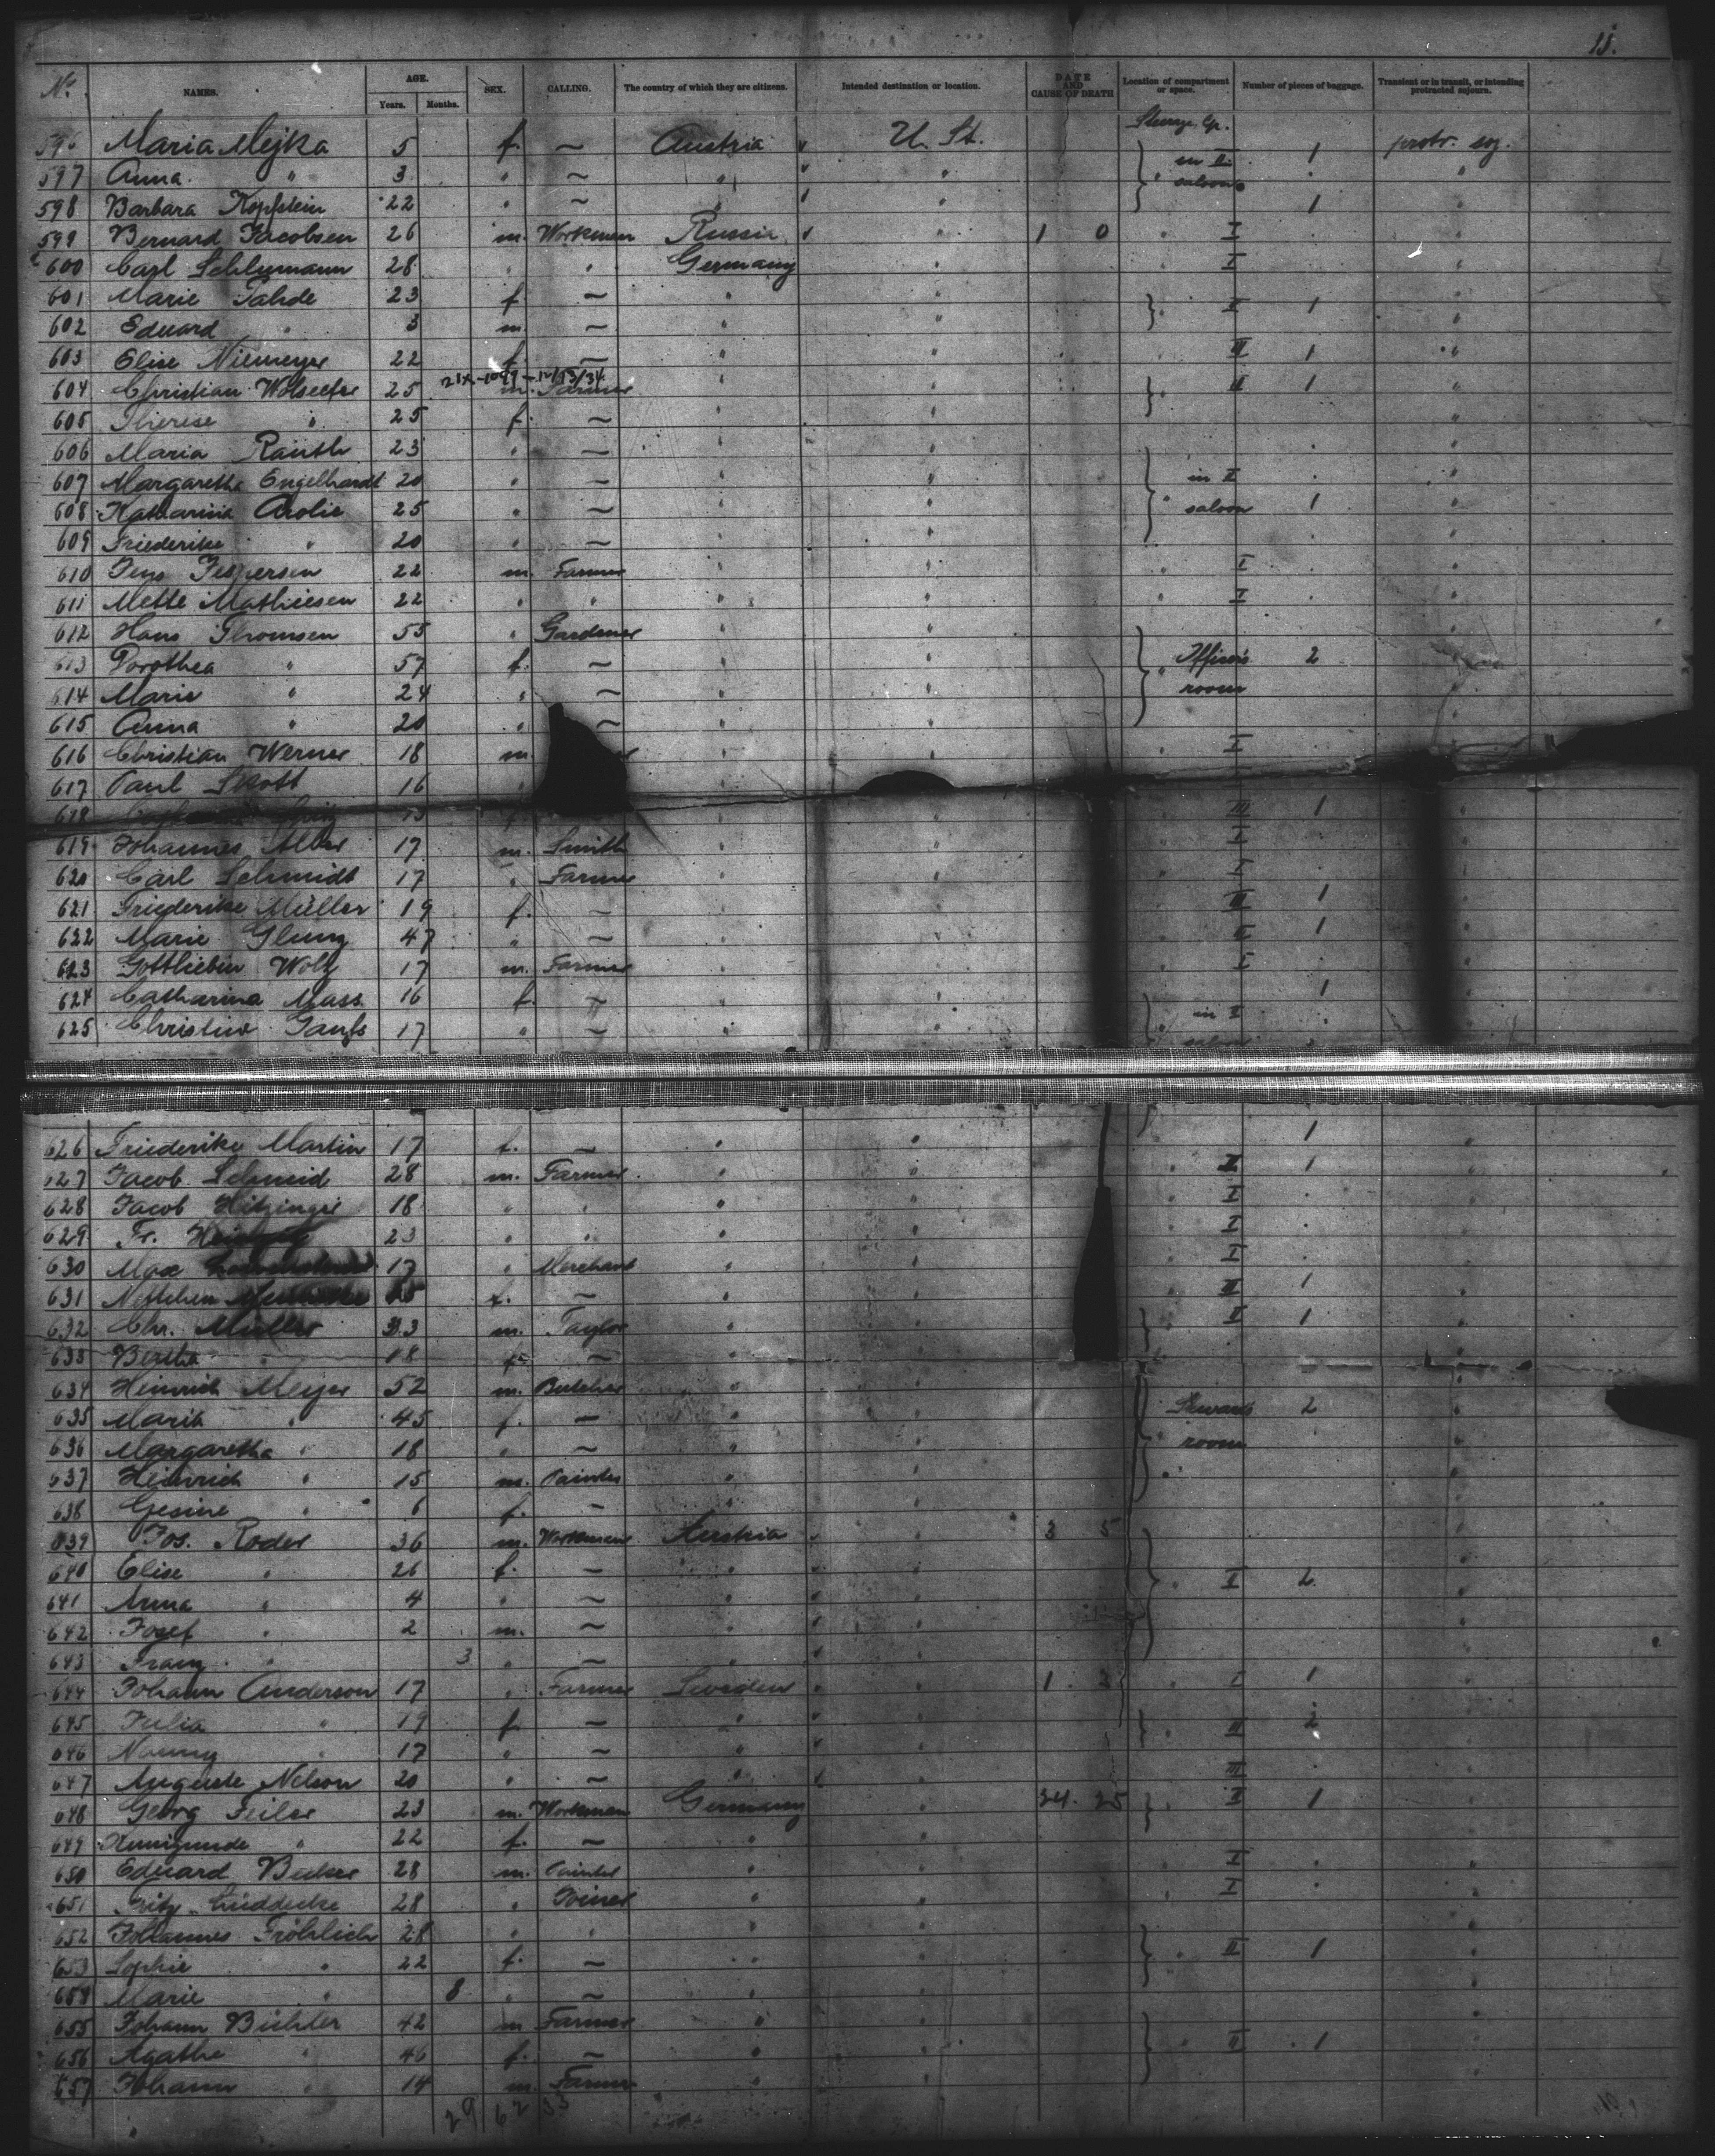 11.
No. NAMES. AGE. Years. Months. SEX. CALLING. The country of which they are citizens. Intended destination or location. DATE AND CAUSE OF DEATH Location of compartment or space. Number of pieces of baggage. Transient or in transit, or intending protracted sojourn.
596 Maria Mejka 5 f. — Austria " U. St. 1 protr. soj.
597 Anna " 3 " — " " " in II saloon "
598 Barbara Kopfstein 22 " — " " " 1
599 Bernard Jacobsen 26 m. Workman Russia " " 1 0 " I " "
600 Carl Schlumann 28 " " Germany " " I " "
601 Marie Tahde 23 f — " " " II 1 "
602 Eduard " 3 m. — " " "
603 Elise Niemeyer 22 f. — " " " III 1 "
21x-1099-12/13/34
604 Christian 25 m. Farmer " " " II 1 "
605 Therese " 25 f. — " " "
606 Maria Rauth 23 " — " " " "
607 Margaretha Engelhardt 20 " — " " in II " "
608 Katharina Arolie 25 " — " " " saloon 1 "
609 Friederike " 20 " — " " "
610 Jens Jespersen 22 m. Farmer " " " I " "
611 Mette Mathiesen 22 " " " " " I " "
612 Hans Thomsen 55 " Gardener " " "
613 Dorothea " 57 f. — " " " Officers 2
614 Marie " 24 " — " " room
615 Anna " 20 " — " "
616 Christian Werner 18 m. " " " I
617 Paul Skott 16 "
618 f " III 1 "
619 Johannes Alber 17 m. Smith " " " I " "
620 Carl Schmidt 17 " Farmer " " " I " "
621 Friederike Müller 19 f. — " " " III 1 "
622 Marie Glunz 47 " — " " " II 1 "
623 Gottliebin Wolf 17 m. Farmer " " " I "
624 Catharina Mass 16 f. — " " 1
625 Christine 17 " — " " " in II saloon " "
626 Friederike Martin 17 f. — " " 1 "
627 Jacob Schmid 28 m. Farmer " " " II 1 "
628 Jacob Hitzinger 18 " " " " " I " "
629 Fr. 23 " " " " " I "
630 Max 17 " Merchant " " " I "
631 Nettchen f. — " " " III 1 "
632 Chr. Müller 33 m. Taylor " " " II 1 "
633 Bertha " 18 f. — " "
634 Heinrich Meyer 52 m. Butcher " " "
635 Maria " 45 f. — " " Stewards 2 "
636 Margaretha " 18 " — " " " room "
637 Heinrich " 15 m. Painter " " "
638 Gesine " 6 f. — " " "
639 Jos. Roder 36 m. Workman Austria " " 3 5
640 Elise " 26 f. — " " " " II 2 "
641 Anna " 4 " — " " " "
642 Josef " 2 m. — " " " "
643 Franz " 3 " — " " "
644 Johann Anderson 17 " Farmer Sweden " " 1 " I 1 "
645 Julia " 19 f. — " " " " III 2 "
646 Nanny " 17 " — " " " "
647 Auguste Nelson 20 " — " " " III "
648 Georg Feiler 23 m. Workman Germany " 24. 25 " II 1 "
649 Kunigunde " 22 f. — " " "
650 Eduard Becker 28 m. Painter " " " I " "
651 Fritz Lüddecke 28 " Joiner " " " I " "
652 Johannes Fröhlich 28 " " " " "
653 Sophie " 22 f. — " " " II 1 "
654 Marie " 8 " — " " "
655 Johann Bühler 42 m Farmer " " "
656 Agathe " 46 f. — " " " II 1 "
657 Johann " 14 m. Farmer " " "
29 62 33